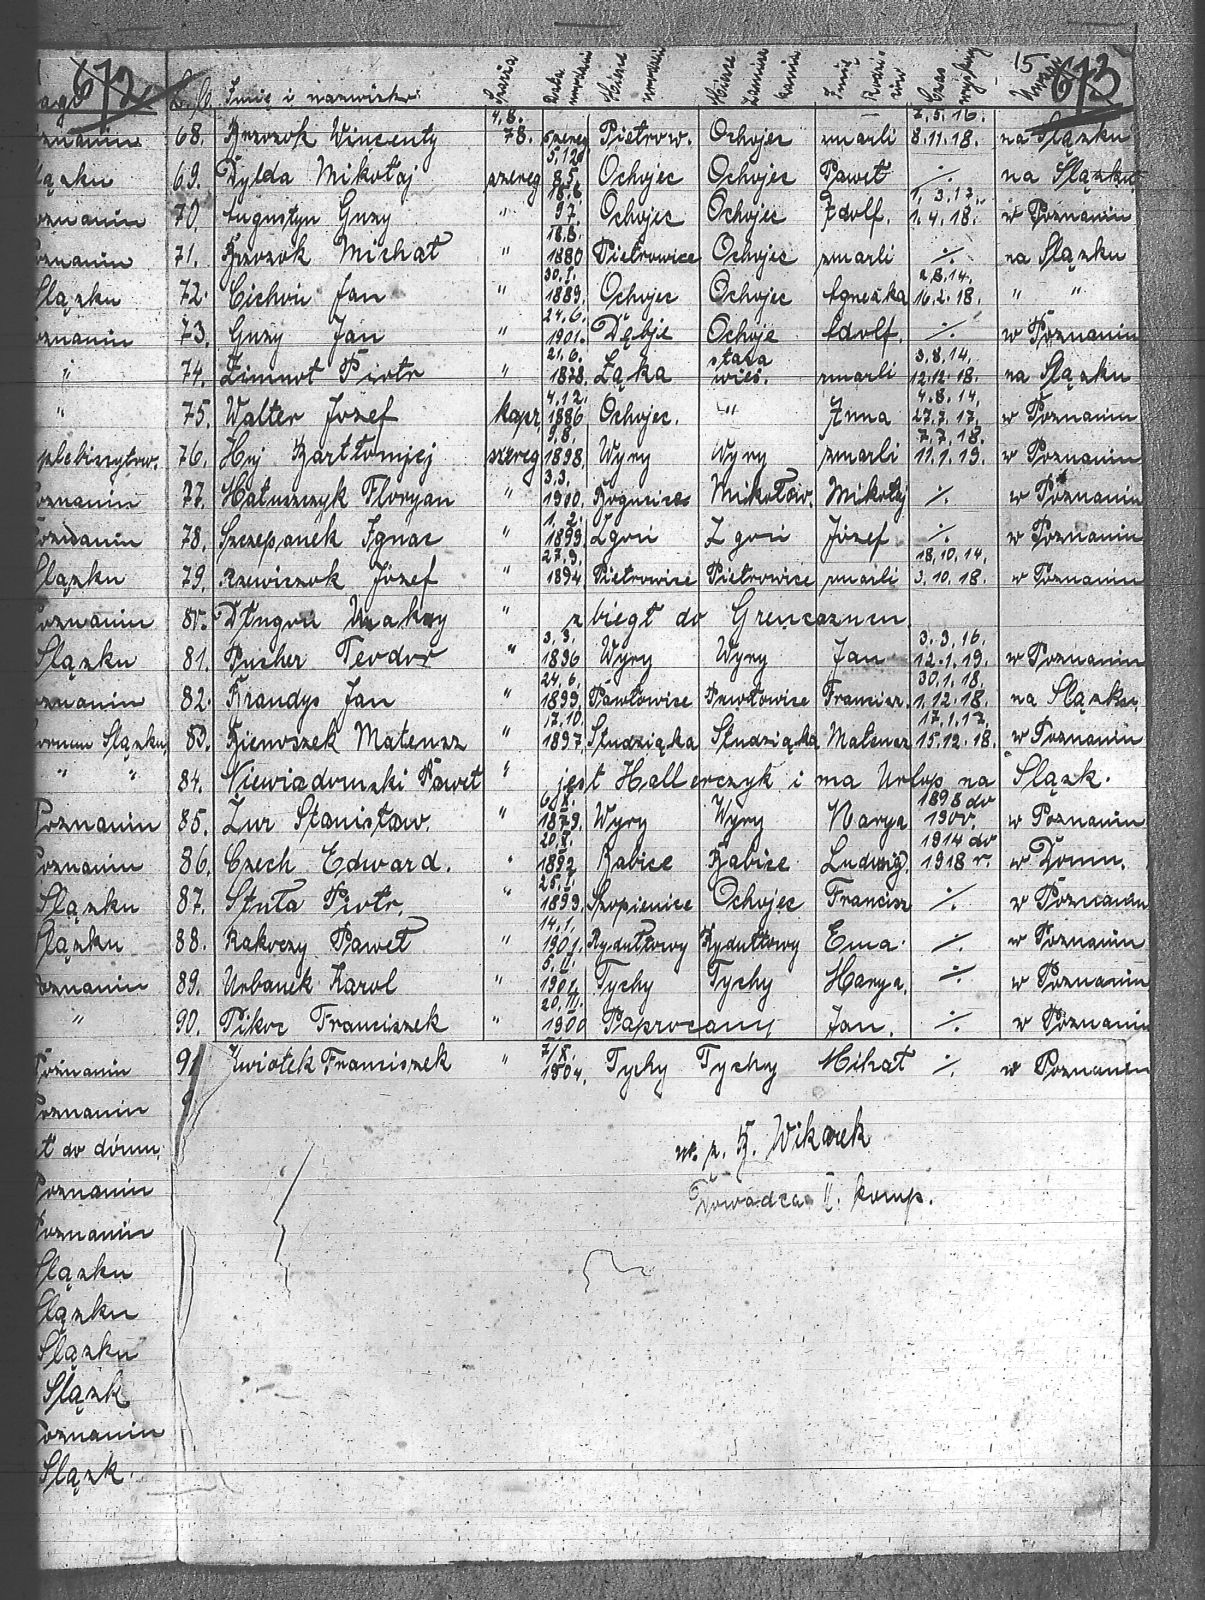 672 673
15
L.p. Imię i nazwisko Szarża Data urodzeni Miejsc urodzeni Miejsc zamiesz kania Imię Rodzi ców Czas wojskowy
68. Brzozok Wincenty 4.8. 78. szereg Pietrow. Ochojec zmarli 7.5.16. 8.11.18. na Slązku
69. Dylda Mikołaj szereg 5.12. 85. Ochojec Ochojec Paweł ./. na Slązku
70. Augustyn Guzy " 18.8. 97. Ochojec Ochojec Adolf. 1.3.17. 1.4.18. w Poznaniu
71. Brzozok Michał " 18.8. 1880 Pietrowice Ochojec zmarli ./. na Slązku
72. Cichoń Jan " 30.1. 1889. Ochojec Ochojec Agneszka 2.8.14. 16.2.18. " "
73. Guzy Jan " 24.6. 1901. Dębje Ochoje Adolf. ./. w Poznaniu
74. Zimnot Piotr " 21.6. 1878. Łąka stara wieś. zmarli 3.8.14. 12.12.18. na Slązku
75. Walter Jozef kapr. 4.12. 1886 Ochojec. " Anna 4.8.14. 27.7.17. w Poznaniu
76. Hyj Bartłomjej szereg 9.8. 1898. Wyry Wyry zmarli 7.7.18. 11.1.19. w Poznaniu
77. Matuszczyk Floryan " 3.3. 1900. Bogucice Mikołow. Mikołaj ./. w Poznaniu
78. Szczepanek Ignac " 1.2. 1899. Zgoń Zgoń Józef ./. w Poznaniu
79. Rzewiczok Józef " 27.9. 1894 Pietrowice Pietrowice zmarli 18.10.14. 3.10.18. w Poznaniu
80. Długon " zbiegł do Grencszucu
81. Pucher Teodor " 3.3. 1896 Wyry Wyry Jan 3.3.16. 12.1.19. w Poznaniu
82. Brandys Jan " 24.6. 1899. Pawłowice Pawłowice Francisz. 30.1.18. 1.12.18. na Slązku
83. Bienoszek Mateusz " 17.10. 1897. Studziąka Studziąka Mateusz 17.1.17. 15.12.18. w Poznaniu
84. Niewiadomski Paweł " jest Hallerczyk i ma Urlop na Slązk.
85. Żur Stanisław. " 6.X. 1879. Wyry Wyry Marya 1898 do 1900. w Poznaniu
86. Czech Edward. " 20.X. 1892 Babice Babice Ludwig. 1914 do 1918 r. w Domu.
87. Stuła Piotr. " 25.I. 1899. Szopienice Ochojec Francisz ./. w Poznaniu
88. Rakoczy Paweł " 14.1. 1901. Rydułtowy Rydułtowy Ema. ./. w Poznaniu
89. Urbanek Karol " 5.II. 1901. Tychy Tychy Marya. ./. w Poznaniu
90. Pikoc Franciszek " 20.III. 1900 Paprocany Jan. ./. w Poznaniu
91 Kwiotek Franciszek " 7/X. 1904. Tychy Tychy Mihał ./. w Poznaniu
Slązku
Poznaniu
plebiscytow.
Poznaniu
Slązku
Poznaniu
Slązku
Poznaniu
Slązku
Poznaniu
Poznaniu
ł do domu.
Poznaniu
Poznaniu
Slązku
Slązku
Slązku
Slązk
Poznaniu
Slązk.
w. z. Wikarek
Dowódca II. komp.